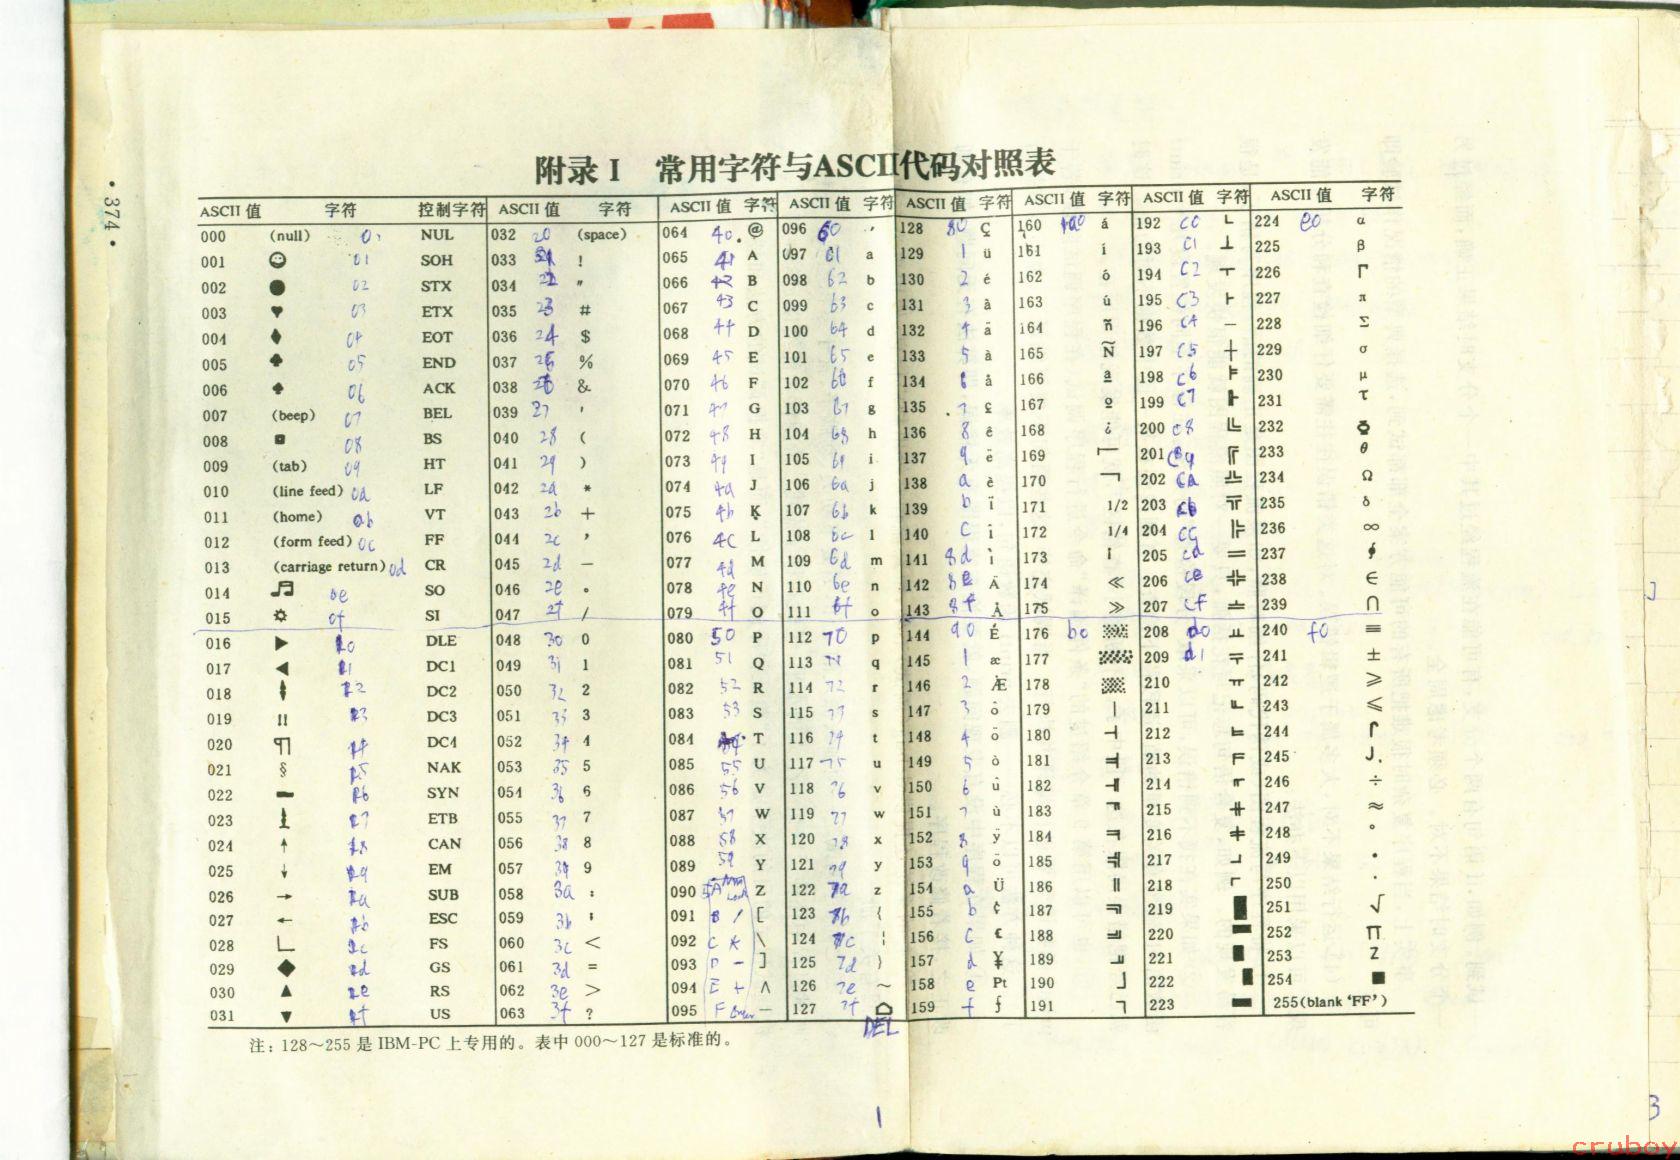 附录 I 常用字符与ASCII代码对照表
ASCII 值 字符 控制字符 ASCII 值 字符 ASCII 值 字符 ASCII 值 字符 ASCII 值 字符 ASCII 值 字符 ASCII 值 字符 ASCII 值 字符
000 (null) NUL 032 20 (space) 064 40 @ 096 60 ′ 128 80 Ç 160 a0 á 192 C0 └ 224 e0 α
001 ☺ 01 SOH 033 21 ! 065 41 A 097 61 a 129 1 ü 161 í 193 C1 ┴ 225 β
002 ● 02 STX 034 22 " 066 42 B 098 62 b 130 2 é 162 ó 194 C2 ┬ 226 Γ
003 ♥ 03 ETX 035 23 # 067 43 C 099 63 c 131 3 à 163 ú 195 C3 ├ 227 π
004 ♦ 04 EOT 036 24 $ 068 44 D 100 64 d 132 4 ä 164 ñ 196 C4 ─ 228 Σ
005 ♣ 05 END 037 25 % 069 45 E 101 65 e 133 5 à 165 Ñ 197 C5 ┼ 229 σ
006 ♠ 06 ACK 038 26 & 070 46 F 102 66 f 134 6 å 166 ª 198 C6 ╞ 230 μ
007 (beep) 07 BEL 039 27 ' 071 47 G 103 67 g 135 7 167 º 199 C7 ╟ 231 τ
008 ◘ 08 BS 040 28 ( 072 48 H 104 68 h 136 8 ê 168 ¿ 200 C8 ╚ 232
009 (tab) 09 HT 041 29 ) 073 49 I 105 69 i 137 9 ë 169 ⌐ 201 C9 ╔ 233 θ
010 (line feed) 0a LF 042 2a * 074 4a J 106 6a j 138 a è 170 ¬ 202 Ca ╩ 234 Ω
011 (home) 0b VT 043 2b + 075 4b K 107 6b k 139 b ï 171 1/2 203 Cb ╦ 235 δ
012 (form feed) 0c FF 044 2c , 076 4C L 108 6c l 140 C î 172 1/4 204 CC ╠ 236 ∞
013 (carriage return) 0d CR 045 2d — 077 4d M 109 6d m 141 8d ì 173 205 Cd ═ 237
014 ♫ 0e SO 046 2e 。 078 4e N 110 6e n 142 8e Ä 174 ≪ 206 Ce ╬ 238 ∈
015 ☼ 0f SI 047 2f / 079 4f O 111 6f o 143 8f Å 175 ≫ 207 Cf ╧ 239 ∩
016 ► 10 DLE 048 30 0 080 50 P 112 70 p 144 90 É 176 b0 ▒ 208 d0 ╨ 240 f0 ≡
017 ◄ 11 DC1 049 31 1 081 51 Q 113 71 q 145 1 æ 177 ▒ 209 d1 ╤ 241 ±
018 ↕ 12 DC2 050 32 2 082 52 R 114 72 r 146 2 Æ 178 ▓ 210 ╥ 242 ⩾
019 ‼ 13 DC3 051 33 3 083 53 S 115 73 s 147 3 ô 179 │ 211 ╙ 243 ⩽
020 ¶ 14 DC4 052 34 4 084 54 T 116 74 t 148 4 ö 180 ┤ 212 ╘ 244 ⌠
021 § 15 NAK 053 35 5 085 55 U 117 75 u 149 5 ò 181 ╡ 213 ╒ 245 ⌡
022 ▬ 16 SYN 054 36 6 086 56 V 118 76 v 150 6 û 182 ╢ 214 ╓ 246 ÷
023 ↨ 17 ETB 055 37 7 087 57 W 119 77 w 151 7 ù 183 ╖ 215 ╫ 247 ≈
024 ↑ 18 CAN 056 38 8 088 58 X 120 78 x 152 8 ÿ 184 ╕ 216 ╪ 248 °
025 ↓ 19 EM 057 39 9 089 59 Y 121 79 y 153 9 ö 185 ╣ 217 ┘ 249 •
026 → 1a SUB 058 3a : 090 5A Z 122 7a z 154 a Ü 186 ║ 218 ┌ 250 ·
027 ← 1b ESC 059 3b ; 091 B / [ 123 7b { 155 b ¢ 187 ╗ 219 █ 251 √
028 ∟ 1c FS 060 3c < 092 C * \ 124 7c ¦ 156 C £ 188 ╝ 220 ▄ 252 Π
029 ◆ 1d GS 061 3d = 093 D - ] 125 7d } 157 d ¥ 189 ╜ 221 ▌ 253 Z
030 ▲ 1e RS 062 3e > 094 E + ∧ 126 7e ~ 158 e Pt 190 ┘ 222 ▐ 254 ■
031 ▼ 1f US 063 3f ? 095 F Enter — 127 7f ⌂ 159 f ƒ 191 ┐ 223 ▬ 255(blank 'FF')
DEL
注: 128～255 是 IBM-PC 上专用的。表中 000～127 是标准的。
• 374 •
1
3
cruboy